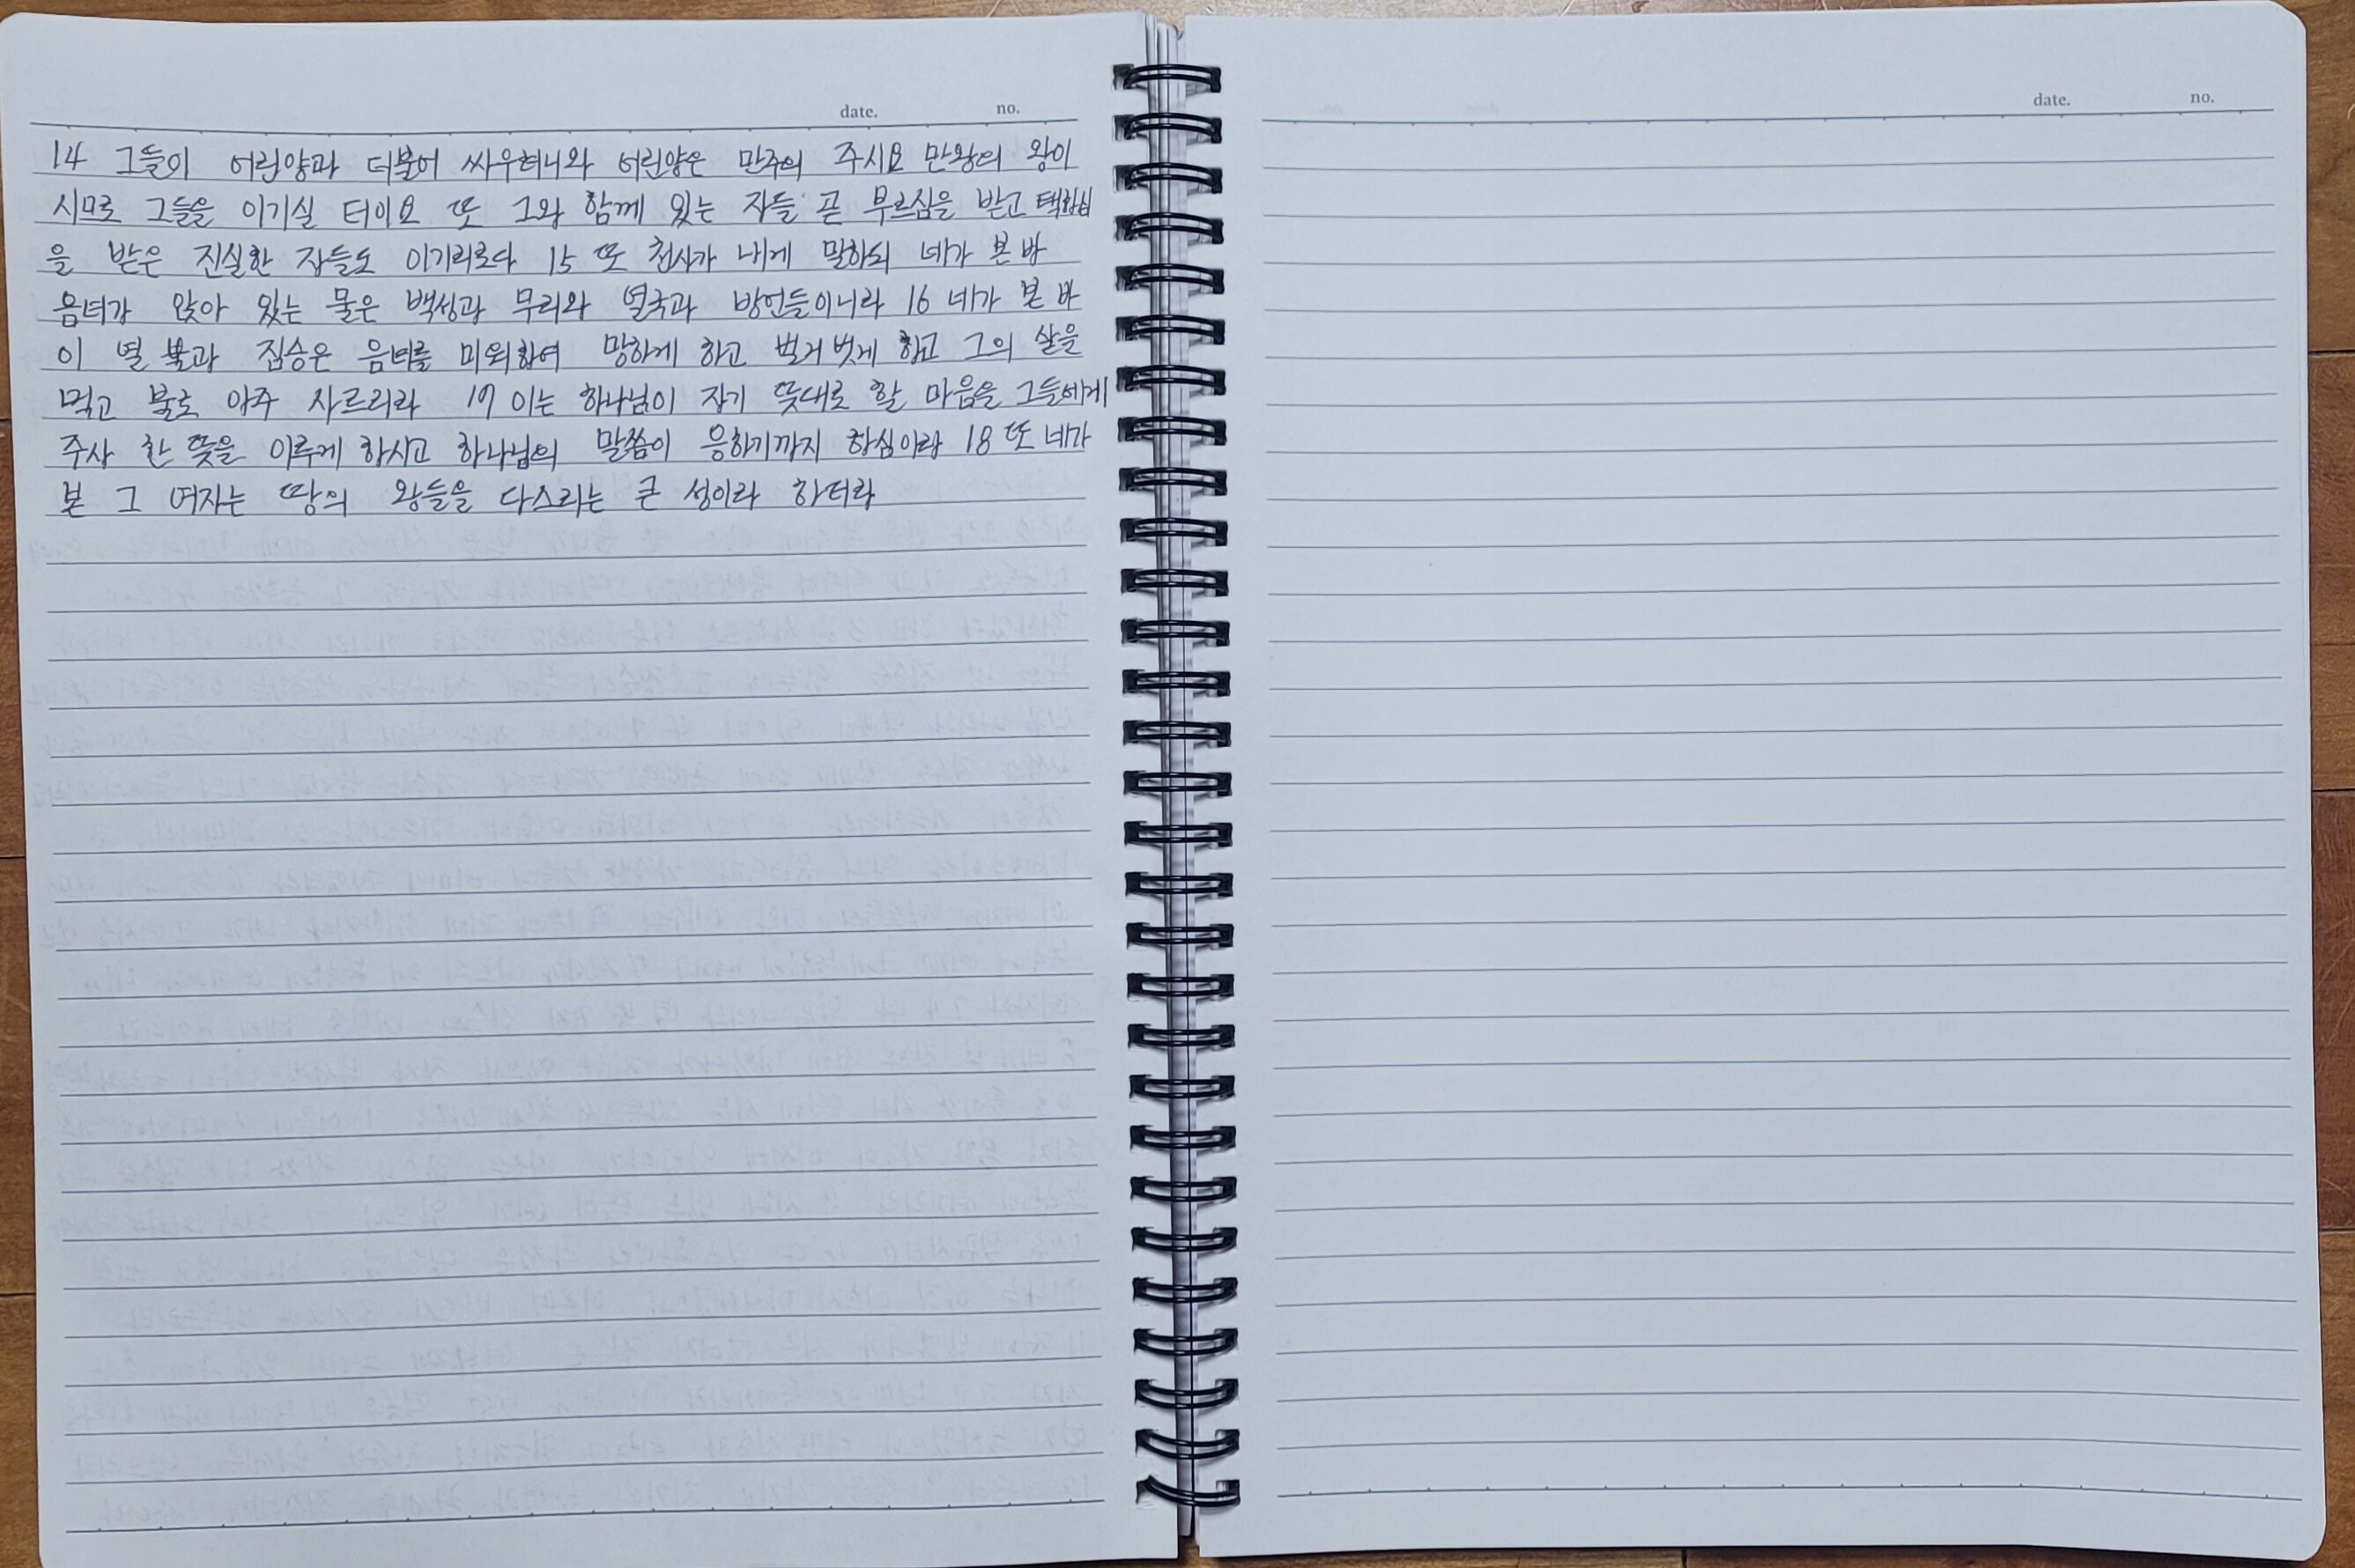 date. no.
14 그들이 어린양과 더불어 싸우려니와 어린양은 만주의 주시요 만왕의 왕이
시므로 그들을 이기실 터이요 또 그와 함께 있는 자들 곧 부르심을 받고 택하심
을 받은 진실한 자들도 이기리로다 15 또 천사가 내게 말하되 네가 본 바
음녀가 앉아 있는 물은 백성과 무리와 열국과 방언들이니라 16 네가 본 바
이 열 뿔과 짐승은 음녀를 미워하여 망하게 하고 벌거벗게 하고 그의 살을
먹고 불로 아주 사르리라 17 이는 하나님이 자기 뜻대로 할 마음을 그들에게
주사 한 뜻을 이루게 하시고 하나님의 말씀이 응하기까지 하심이라 18 또 네가
본 그 여자는 땅의 왕들을 다스리는 큰 성이라 하더라
date. no.